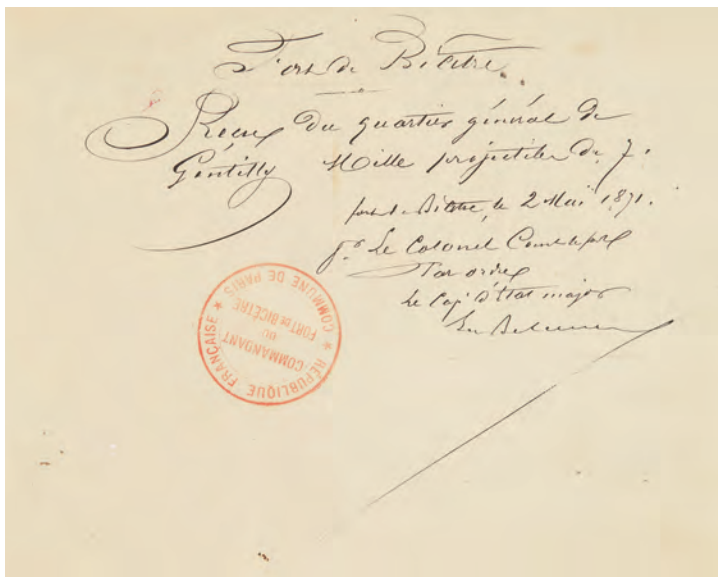 Fort de Bicêtre.
Reçu du quartier général de
Gentilly Mille projectiles de 7.
fort de Bicêtre, le 2 Mai 1871.
Le Colonel
Par ordre
Le Cap. d'Etat major
★ RÉPUBLIQUE FRANÇAISE ★ COMMUNE DE PARIS
COMMANDANT
DU
FORT DE BICÊTRE